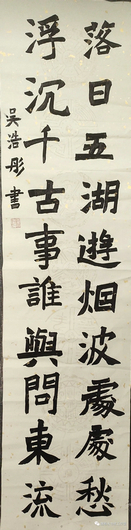 落日五湖遊烟波處處愁
浮沉千古事誰與問東流
吳浩彤書